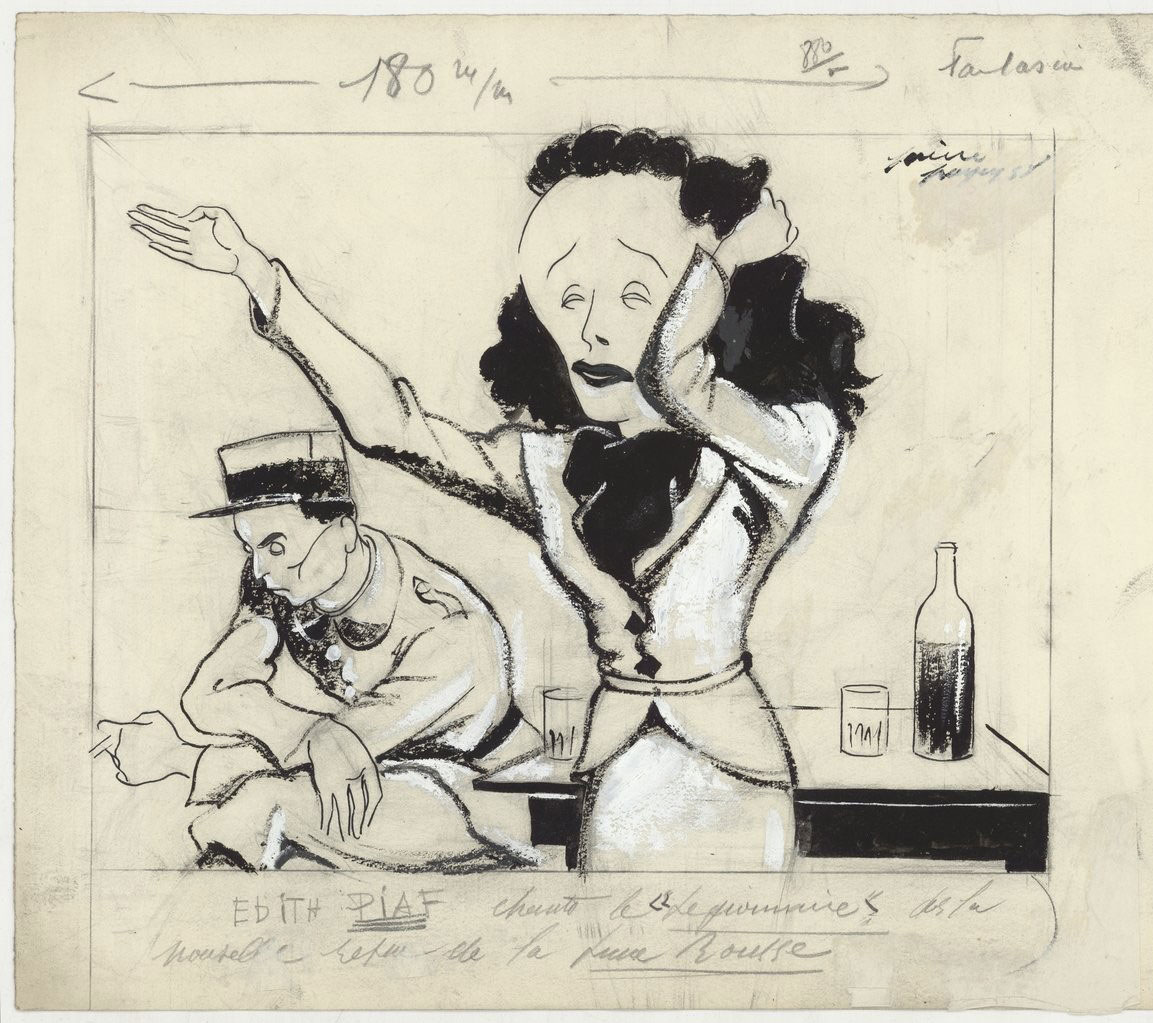 180 m/m
EDITH PIAF chante le "Legionnaire" de la
nouvelle revue de la Lune Rousse